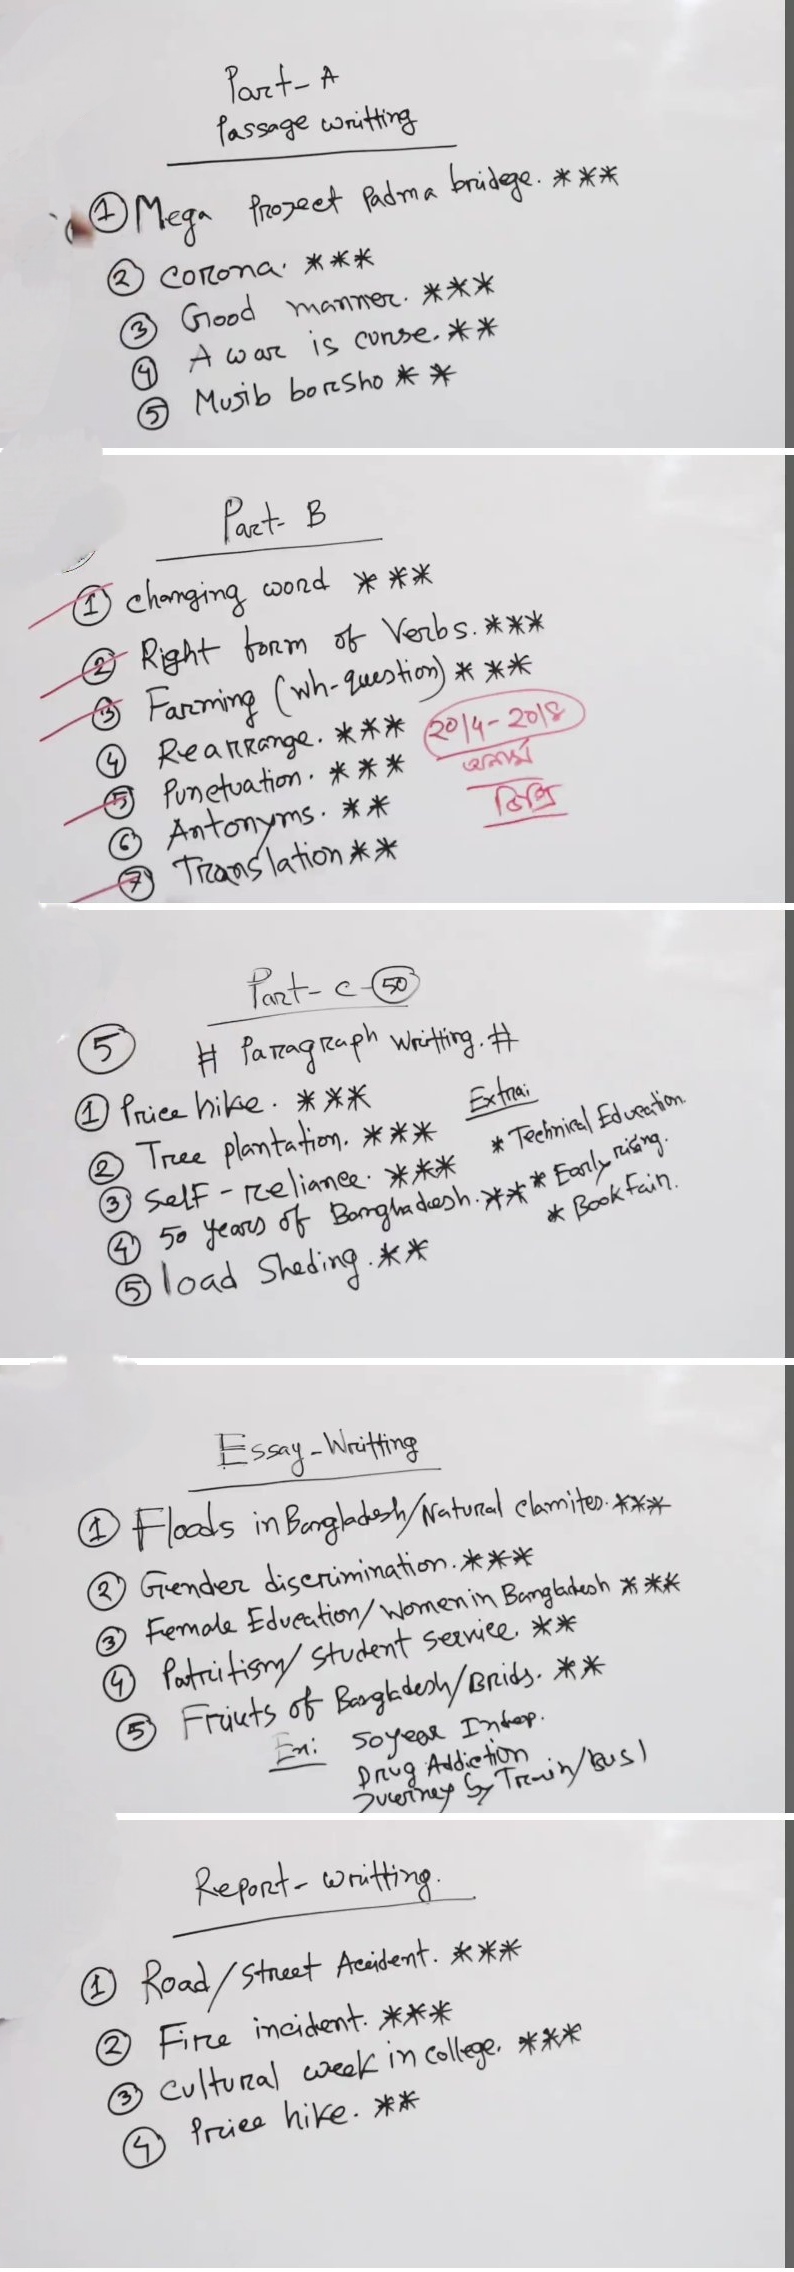 Part-A
Passage writting
① Mega Project Padma bridege. ***
② corona. ***
③ Good manner. ***
④ A war is curse. **
⑤ Mujib borsho **
Part-B
① changing word ***
② Right form of Verbs. ***
③ Farming (wh-question) ***
④ Rearrange. ***
2014-2018
⑤ Punctuation. ***
অনার্স
⑥ Antonyms. **
ডিগ্রি
⑦ Translation **
Part-C-50
⑤ # Paragraph writting. #
① Price hike. ***
Extra:
② Tree plantation. ***
* Technical Education.
③ Self-reliance. ***
* Early rising.
④ 50 years of Bangladesh. **
* Book Fair.
⑤ load Sheding. **
Essay-Writting
① Floods in Bangladesh/Natural clamites. ***
② Gender discrimination. ***
③ Female Education/Women in Bangladesh ***
④ Patritism/Student service. **
⑤ Friuts of Bangladesh/Brids. **
Ex: 50 year Indep.
Drug Addiction
Juerney by Train/Bus)
Report-writting.
① Road/Street Accident. ***
② Fire incident. ***
③ cultural week in college. ***
④ Price hike. **